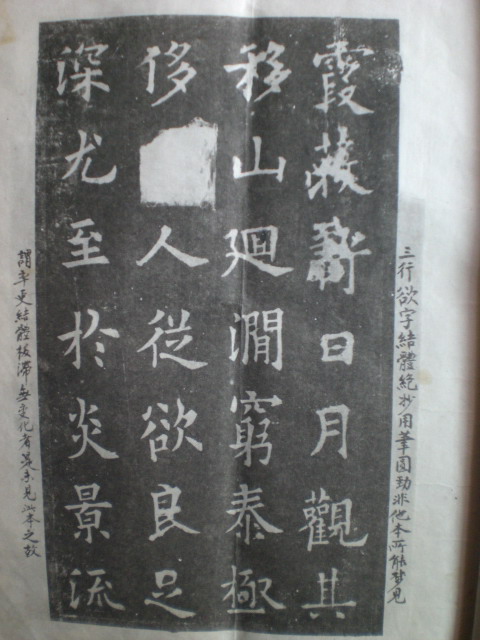 三行欲字結體絕玅用筆圓勁非他本所能夢見
霞蔽虧日月觀其
移山廻澗窮泰極
侈人從欲良足
深尤至於炎景流
謂率更結體板滯無變化者蓋未見此本之故